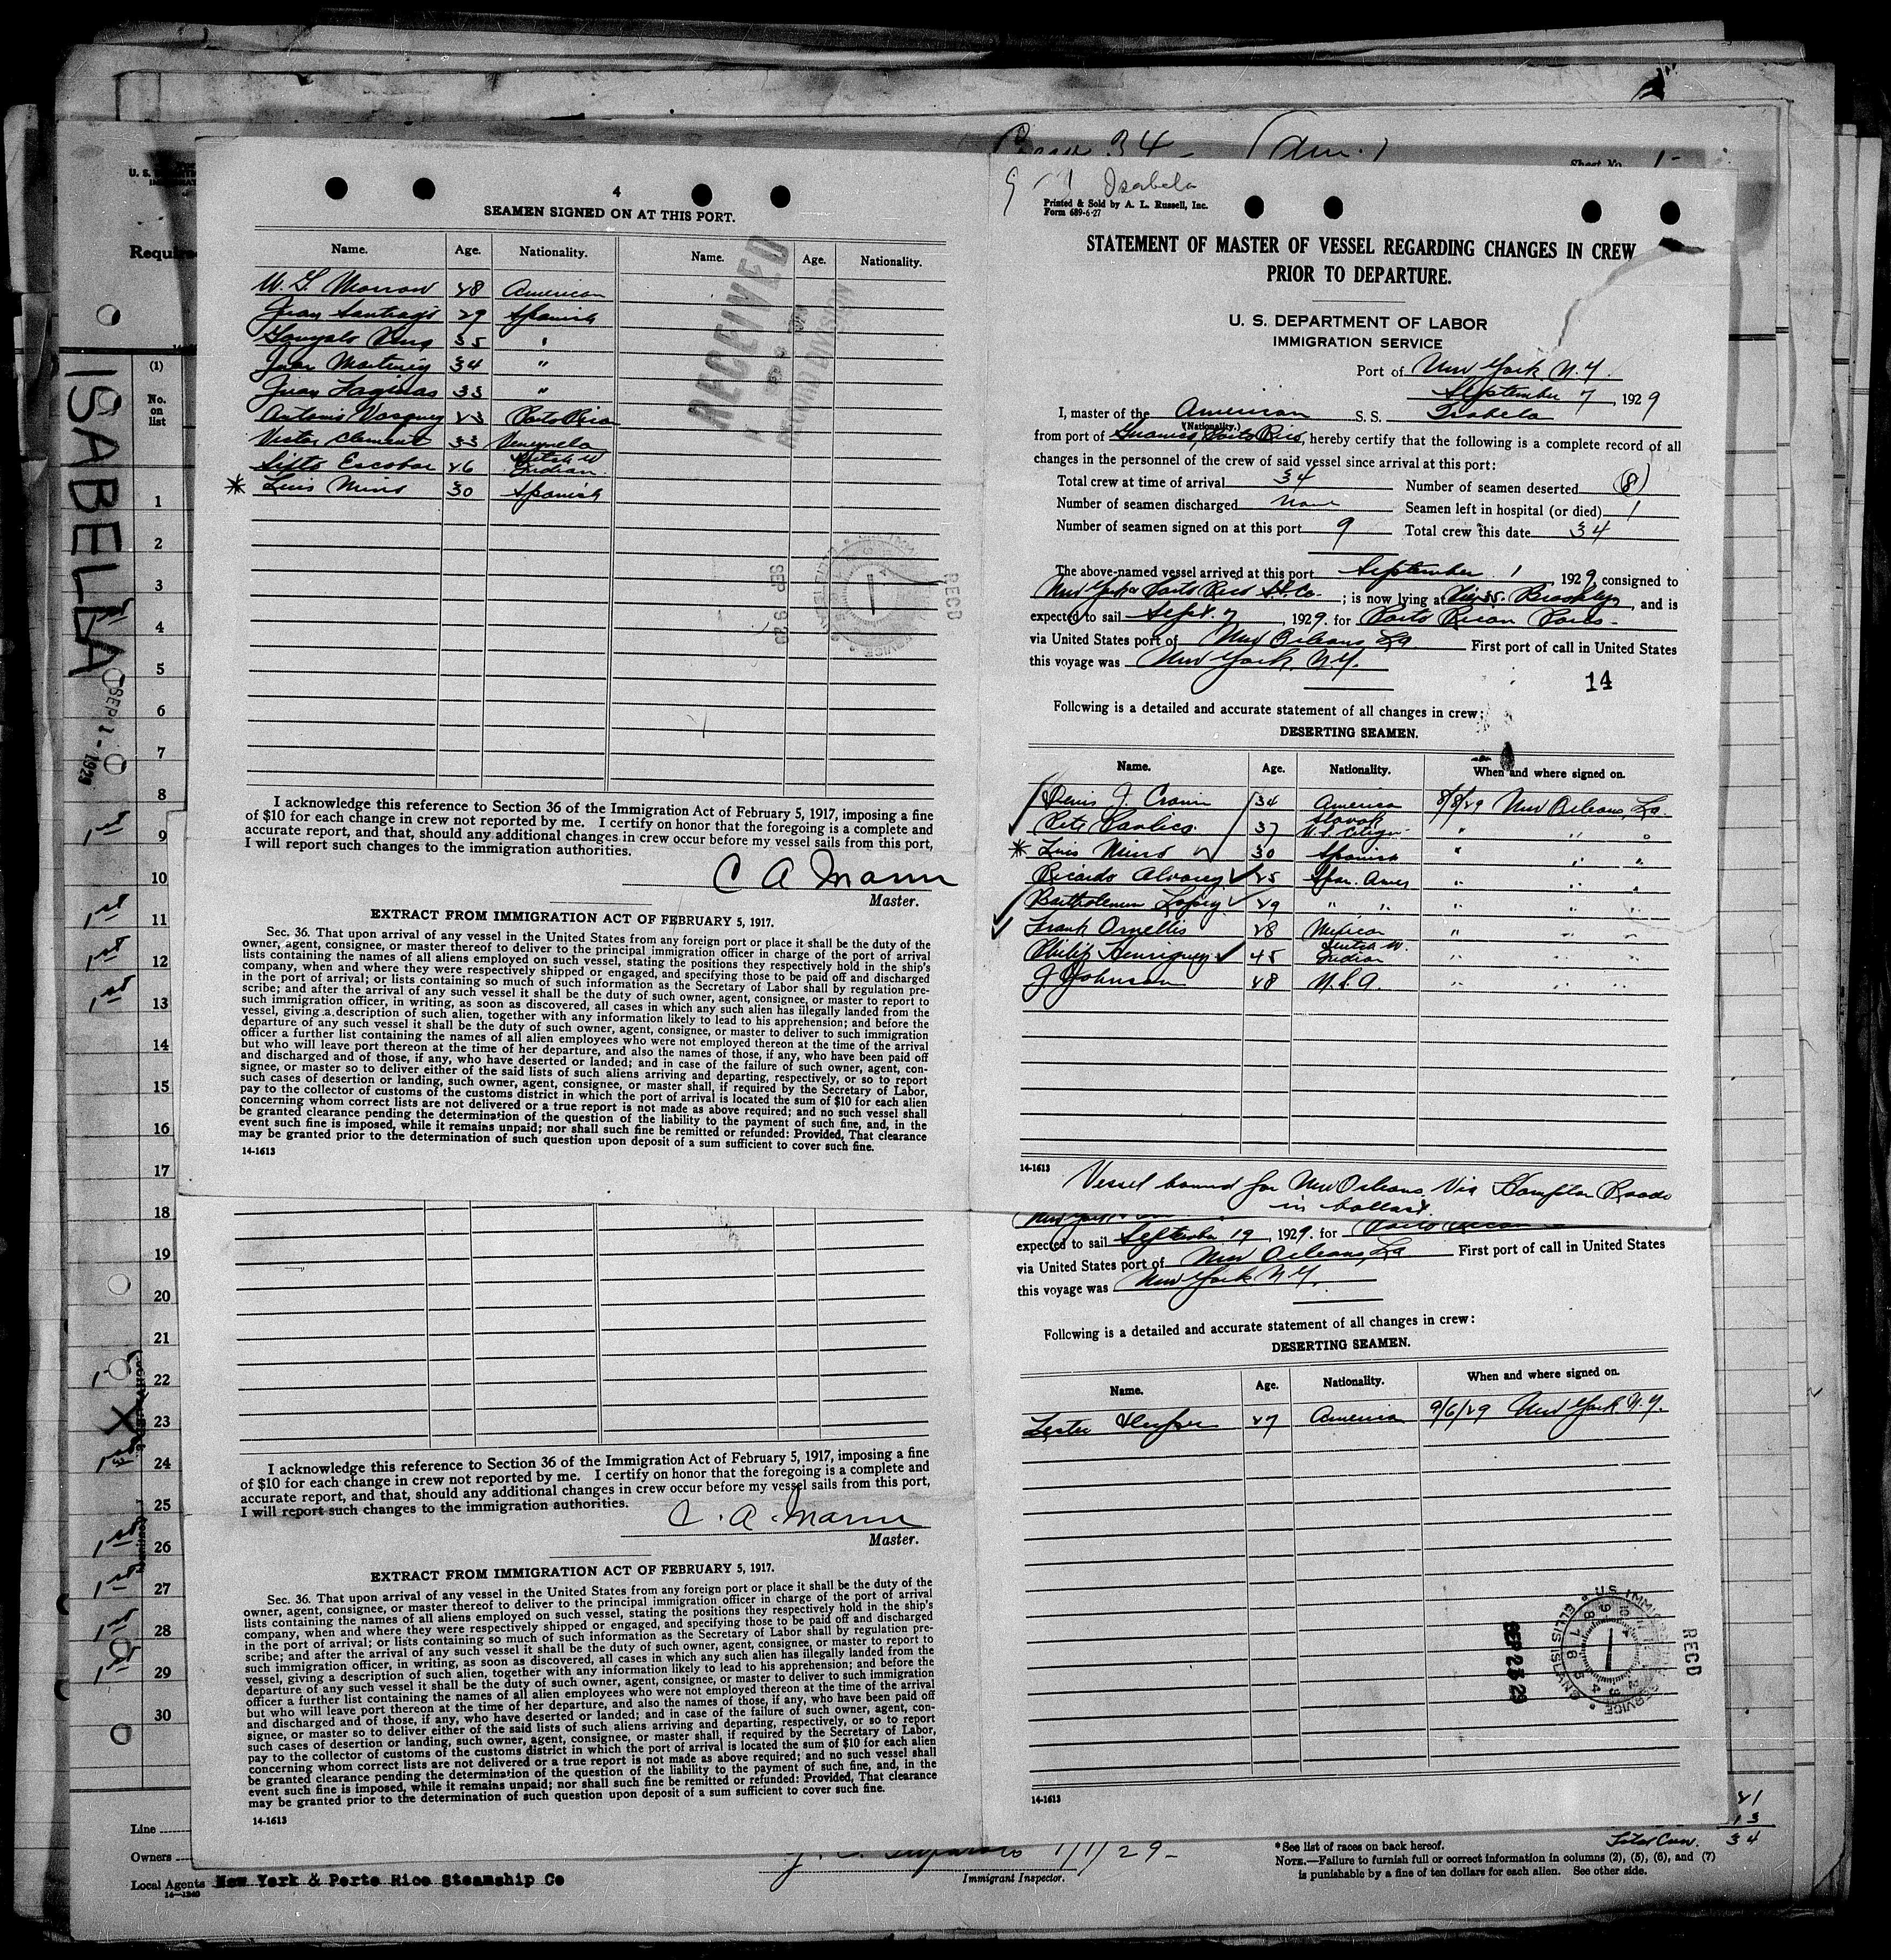 Crew 34 - (Am.)
Sheet No. 1-
U. S.
Requi
ISABELLA
SEP 1 - 1929
(1)
No.
on
list
1
2
3
4
5
6
7
8
9
10
11
12
13
14
15
16
17
18
19
20
21
22
23
24
25
26
27
28
29
30
4
SEAMEN SIGNED ON AT THIS PORT.
Name. Age. Nationality. Name. Age. Nationality.
W. G. Morrow 28 American
Juan Santiago 29 Spanish
Gonzalo 35 "
Juan Martinez 34 "
Juan 33 "
Antonio Vasquez 23 Porto Rico
Victor Clement 33 Venezuela
Sixto Escobar 26 Dutch W Indian
* Luis Mino 30 Spanish
RECEIVED
RECORD DIVISION
SEP 9 29
RECD
I acknowledge this reference to Section 36 of the Immigration Act of February 5, 1917, imposing a fine
of $10 for each change in crew not reported by me. I certify on honor that the foregoing is a complete and
accurate report, and that, should any additional changes in crew occur before my vessel sails from this port,
I will report such changes to the immigration authorities.
C A Mann
Master.
EXTRACT FROM IMMIGRATION ACT OF FEBRUARY 5, 1917.
Sec. 36. That upon arrival of any vessel in the United States from any foreign port or place it shall be the duty of the
owner, agent, consignee, or master thereof to deliver to the principal immigration officer in charge of the port of arrival
lists containing the names of all aliens employed on such vessel, stating the positions they respectively hold in the ship's
company, when and where they were respectively shipped or engaged, and specifying those to be paid off and discharged
in the port of arrival; or lists containing so much of such information as the Secretary of Labor shall by regulation pre-
scribe; and after the arrival of any such vessel it shall be the duty of such owner, agent, consignee, or master to report to
such immigration officer, in writing, as soon as discovered, all cases in which any such alien has illegally landed from the
vessel, giving a description of such alien, together with any information likely to lead to his apprehension; and before the
departure of any such vessel it shall be the duty of such owner, agent, consignee, or master to deliver to such immigration
officer a further list containing the names of all alien employees who were not employed thereon at the time of the arrival
but who will leave port thereon at the time of her departure, and also the names of those, if any, who have been paid off
and discharged and of those, if any, who have deserted or landed; and in case of the failure of such owner, agent, con-
signee, or master so to deliver either of the said lists of such aliens arriving and departing, respectively, or so to report
such cases of desertion or landing, such owner, agent, consignee, or master shall, if required by the Secretary of Labor,
pay to the collector of customs of the customs district in which the port of arrival is located the sum of $10 for each alien
concerning whom correct lists are not delivered or a true report is not made as above required; and no such vessel shall
be granted clearance pending the determination of the question of the liability to the payment of such fine, and, in the
event such fine is imposed, while it remains unpaid; nor shall such fine be remitted or refunded: Provided, That clearance
may be granted prior to the determination of such question upon deposit of a sum sufficient to cover such fine.
14-1613
I acknowledge this reference to Section 36 of the Immigration Act of February 5, 1917, imposing a fine
of $10 for each change in crew not reported by me. I certify on honor that the foregoing is a complete and
accurate report, and that, should any additional changes in crew occur before my vessel sails from this port,
I will report such changes to the immigration authorities.
C. A. Mann
Master.
EXTRACT FROM IMMIGRATION ACT OF FEBRUARY 5, 1917.
Sec. 36. That upon arrival of any vessel in the United States from any foreign port or place it shall be the duty of the
owner, agent, consignee, or master thereof to deliver to the principal immigration officer in charge of the port of arrival
lists containing the names of all aliens employed on such vessel, stating the positions they respectively hold in the ship's
company, when and where they were respectively shipped or engaged, and specifying those to be paid off and discharged
in the port of arrival; or lists containing so much of such information as the Secretary of Labor shall by regulation pre-
scribe; and after the arrival of any such vessel it shall be the duty of such owner, agent, consignee, or master to report to
such immigration officer, in writing, as soon as discovered, all cases in which any such alien has illegally landed from the
vessel, giving a description of such alien, together with any information likely to lead to his apprehension; and before the
departure of any such vessel it shall be the duty of such owner, agent, consignee, or master to deliver to such immigration
officer a further list containing the names of all alien employees who were not employed thereon at the time of the arrival
but who will leave port thereon at the time of her departure, and also the names of those, if any, who have been paid off
and discharged and of those, if any, who have deserted or landed; and in case of the failure of such owner, agent, con-
signee, or master so to deliver either of the said lists of such aliens arriving and departing, respectively, or so to report
such cases of desertion or landing, such owner, agent, consignee, or master shall, if required by the Secretary of Labor,
pay to the collector of customs of the customs district in which the port of arrival is located the sum of $10 for each alien
concerning whom correct lists are not delivered or a true report is not made as above required; and no such vessel shall
be granted clearance pending the determination of the question of the liability to the payment of such fine, and, in the
event such fine is imposed, while it remains unpaid; nor shall such fine be remitted or refunded: Provided, That clearance
may be granted prior to the determination of such question upon deposit of a sum sufficient to cover such fine.
14-1613
Isabela
Printed & Sold by A. L. Russell, Inc.
Form 689-6-27
STATEMENT OF MASTER OF VESSEL REGARDING CHANGES IN CREW
PRIOR TO DEPARTURE.
U. S. DEPARTMENT OF LABOR
IMMIGRATION SERVICE
Port of New York N.Y.
September 7, 1929
I, master of the American S. S. Isabela
(Nationality.)
from port of Guanica, Porto Rico, hereby certify that the following is a complete record of all
changes in the personnel of the crew of said vessel since arrival at this port:
Total crew at time of arrival 34 Number of seamen deserted (8)
Number of seamen discharged None Seamen left in hospital (or died) 1
Number of seamen signed on at this port 9 Total crew this date 34
The above-named vessel arrived at this port September 1, 1929 consigned to
New York & Porto Rico S.S. Co. ; is now lying at Pier 35 Brooklyn, and is
expected to sail Sept. 7, 1929. for Porto Rican Ports -
via United States port of New Orleans La First port of call in United States
this voyage was New York, N.Y.
14
Following is a detailed and accurate statement of all changes in crew:
DESERTING SEAMEN.
Name. Age. Nationality. When and where signed on.
Denis J. Cronin 34 America 8/8/29 New Orleans, La.
Pete Pavlics 37 Slovak U.S. Citizen " " "
* Luis Mino 30 Spanish " " "
Ricardo Alvarez 25 Span. Amer " " "
Bartholemew Lopez 29 " " " " "
Frank Ornellis 28 Mexican " " "
Philip Henriquez 45 Dutch W. Indian " " "
J Johnson 48 U.S.A. " " "
14-1613
Vessel bound for New Orleans Via Hampton Roads
in ballast.
expected to sail September 19, 1929. for Porto Rican
via United States port of New Orleans, La First port of call in United States
this voyage was New York N.Y.
Following is a detailed and accurate statement of all changes in crew:
DESERTING SEAMEN.
Name. Age. Nationality. When and where signed on.
Lester 27 America 9/6/29 New York. N.Y.
SEP 23 29
U.S. IMMIG SERVICE ELLIS ISLAND
RECD
14-1613
21
13
Total Crew. 34
Line
Owners
Local Agents New York & Porto Rico Steamship Co
14-1240
1/1/29-
Immigrant Inspector.
* See list of races on back hereof.
NOTE.—Failure to furnish full or correct information in columns (2), (5), (6), and (7)
is punishable by a fine of ten dollars for each alien. See other side.